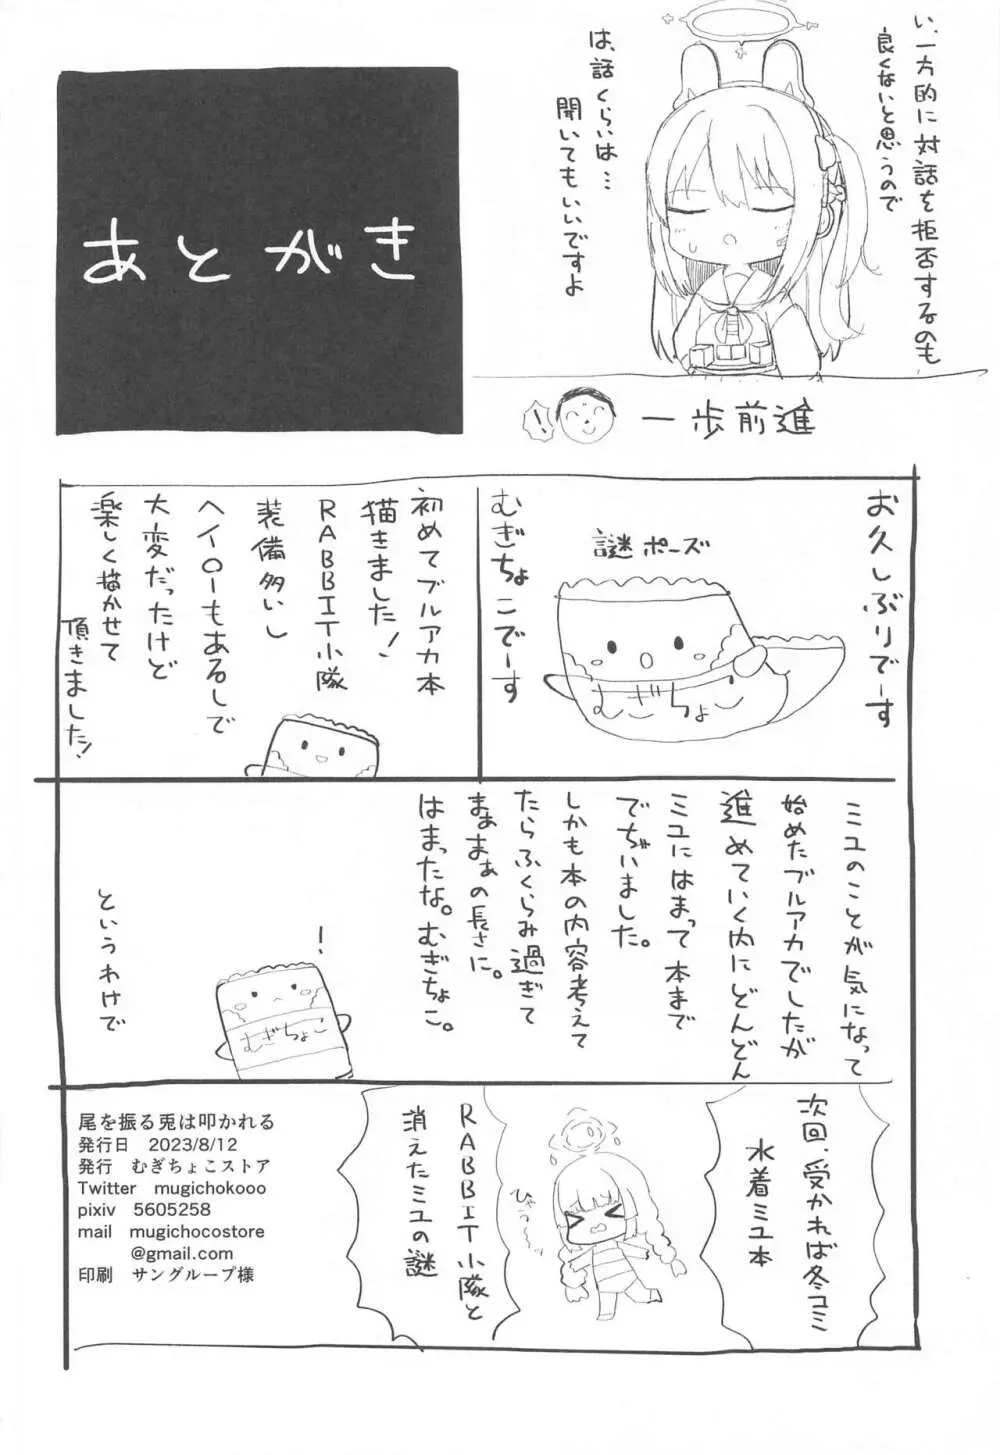 い、一方的に対話を拒否するのも
良くないと思うので
は、話くらいは…
聞いてもいいですよ
！
一歩前進
あとがき
お久しぶりでーす
謎ポーズ
むぎちょこ
むぎちょこでーす
初めてブルアカ本
描きました！
RABBIT小隊
装備多いし
ヘイローもあるしで
大変だったけど
楽しく描かせて
頂きました！
ミユのことが気になって
始めたブルアカでしたが
進めていく内にどんどん
ミユにはまって本まで
でちゃいました。
しかも本の内容考えて
たらふくらみ過ぎて
まぁまぁの長さに。
はまったな。むぎちょこ。
！
むぎちょこ
というわけで
次回、受かれば冬コミ
水着ミユ本
びゅう〜
RABBIT小隊と
消えたミユの謎
尾を振る兎は叩かれる
発行日　2023/8/12
発行　むぎちょこストア
Twitter　mugichokooo
pixiv　5605258
mail　mugichocostore
@gmail.com
印刷　サングループ様